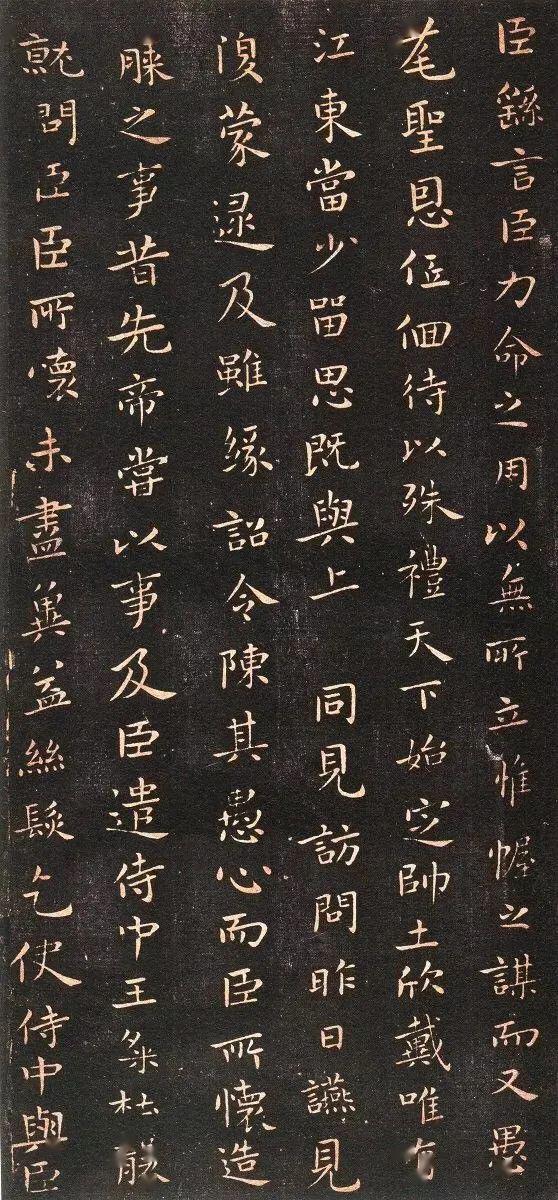 臣繇言臣力命之用以無所立惟幄之謀而又愚
耄聖恩伍佪待以殊禮天下始定帥土欣戴唯有
江東當少留思既與上同見訪問昨日讌見
復蒙逮及雖緣詔令陳其愚心而臣所懷造
膝之事昔先帝嘗以事及臣遣侍中王粲杜襲
就問臣臣所懷未盡冀益絲髮乞使侍中與臣